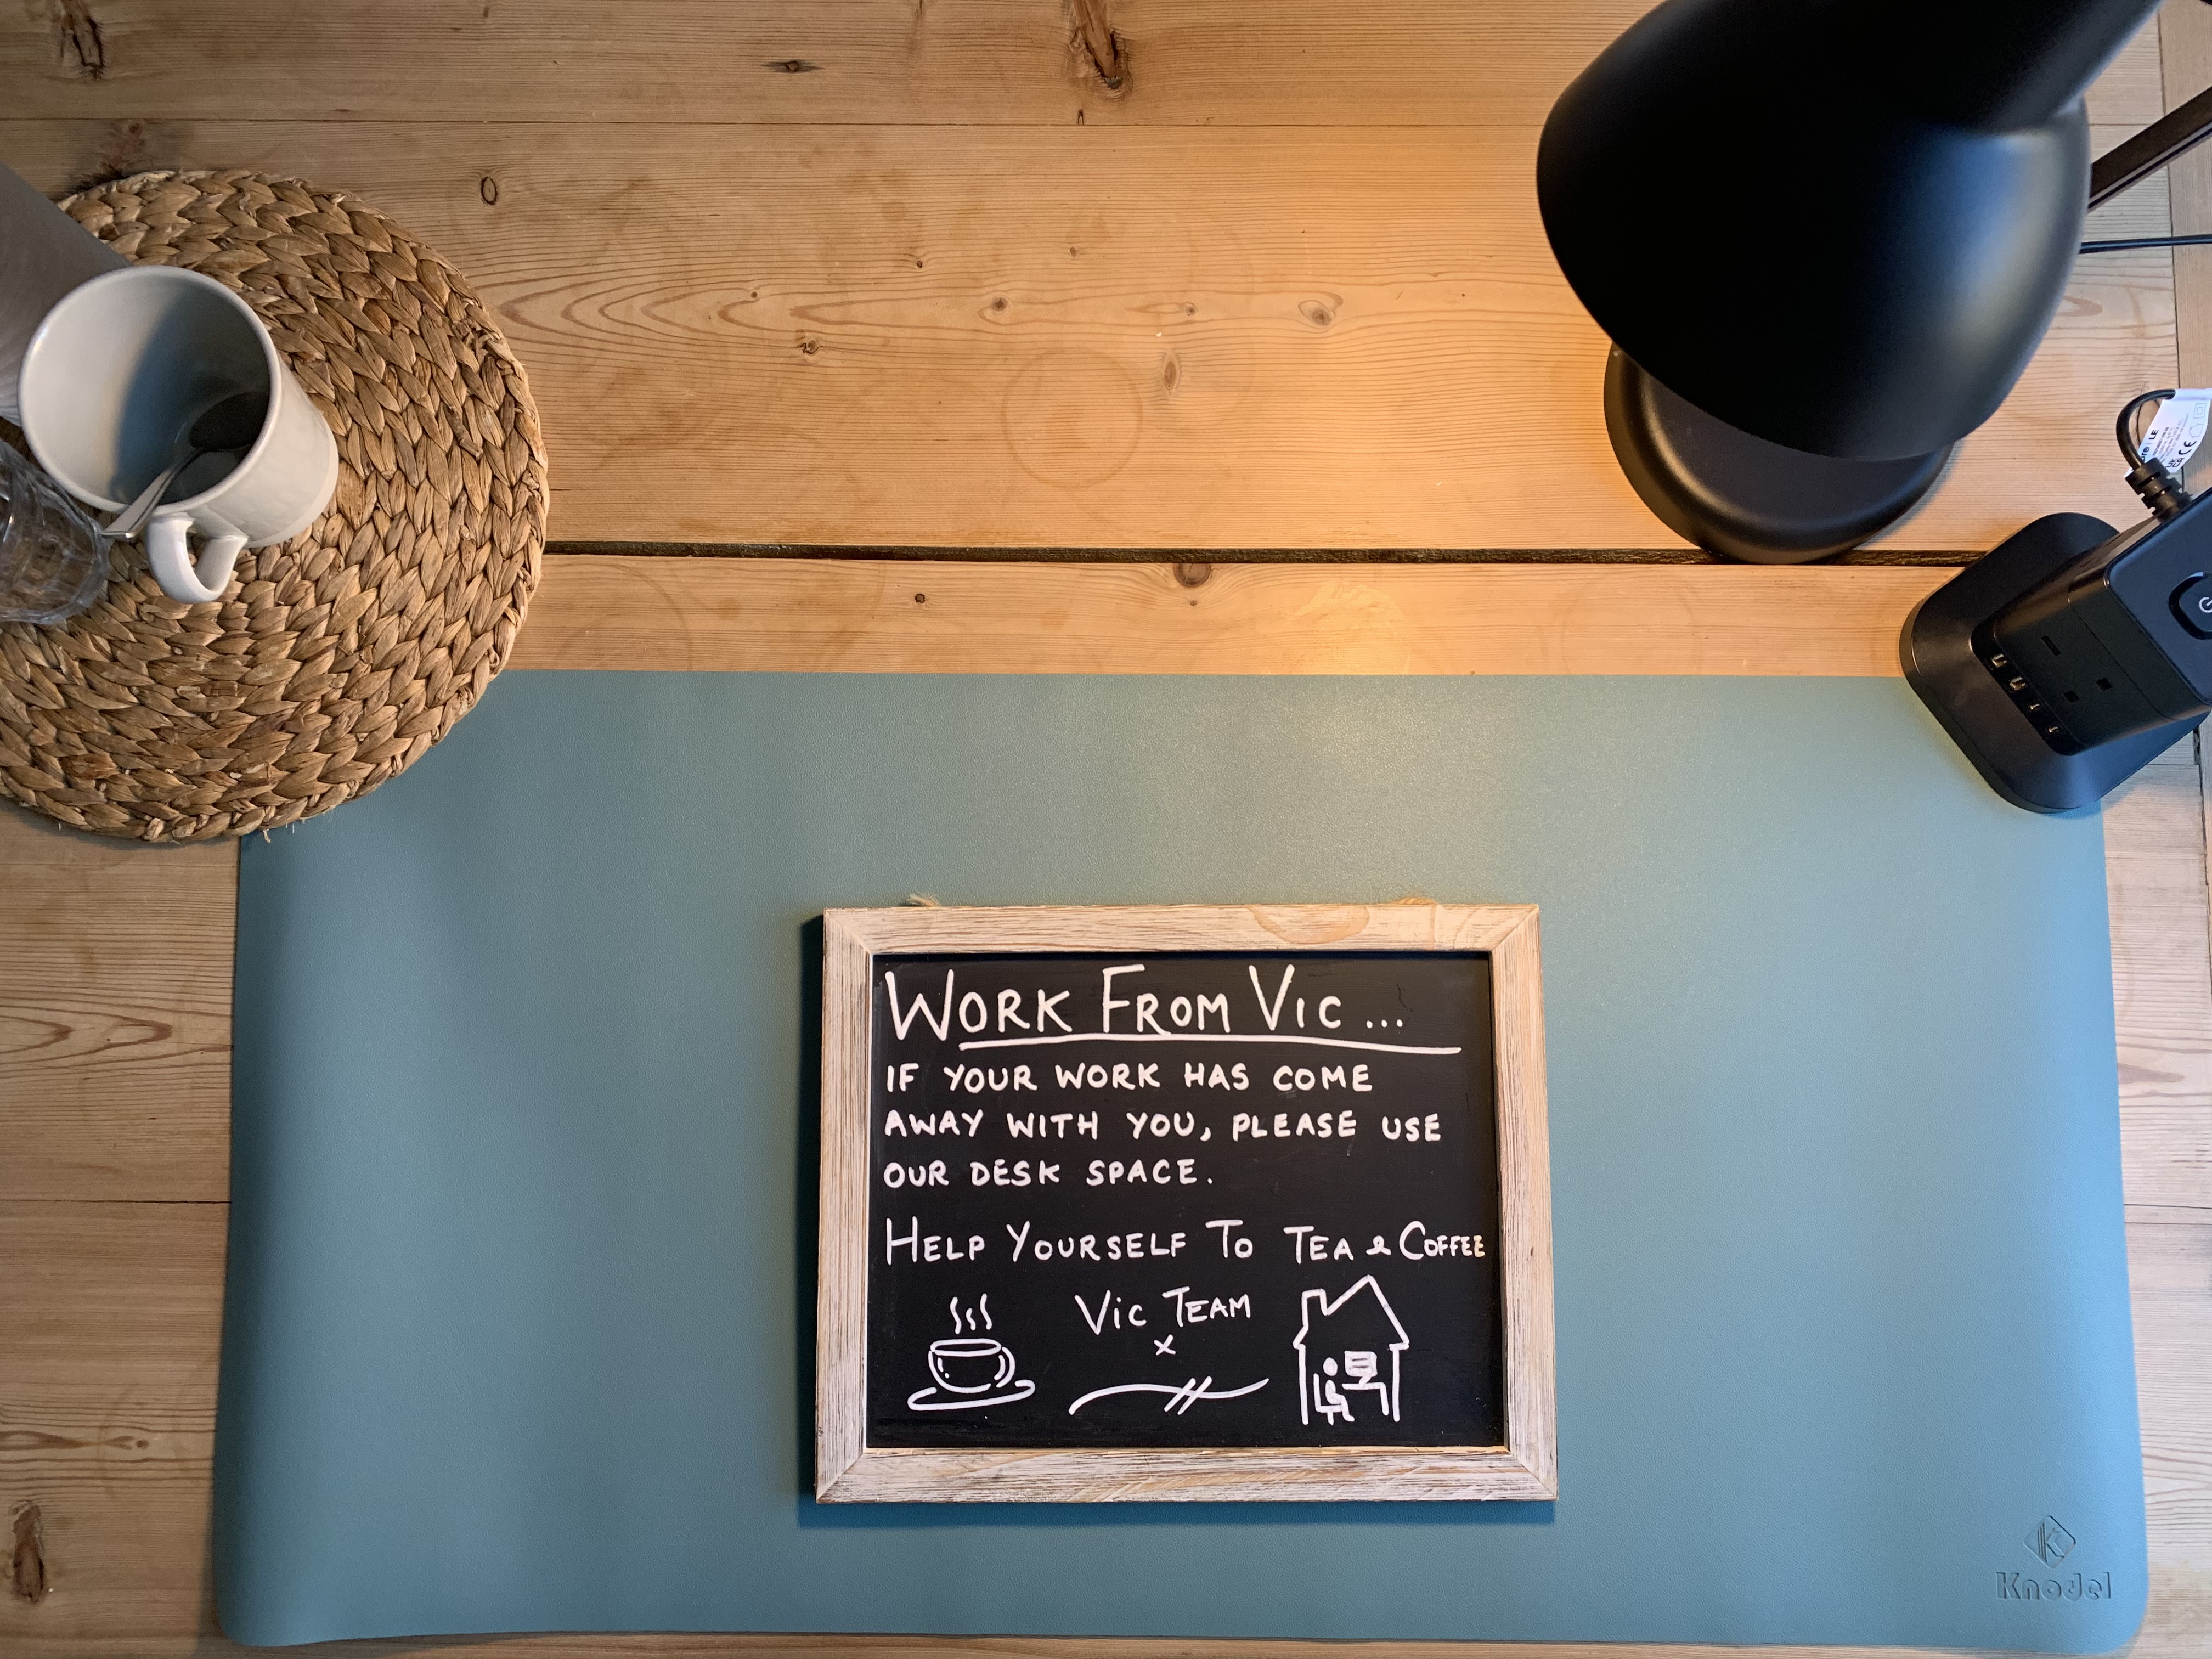 WORK FROM VIC ...
IF YOUR WORK HAS COME
AWAY WITH YOU, PLEASE USE
OUR DESK SPACE.
HELP YOURSELF TO TEA & COFFEE
VIC TEAM
x
Knodel